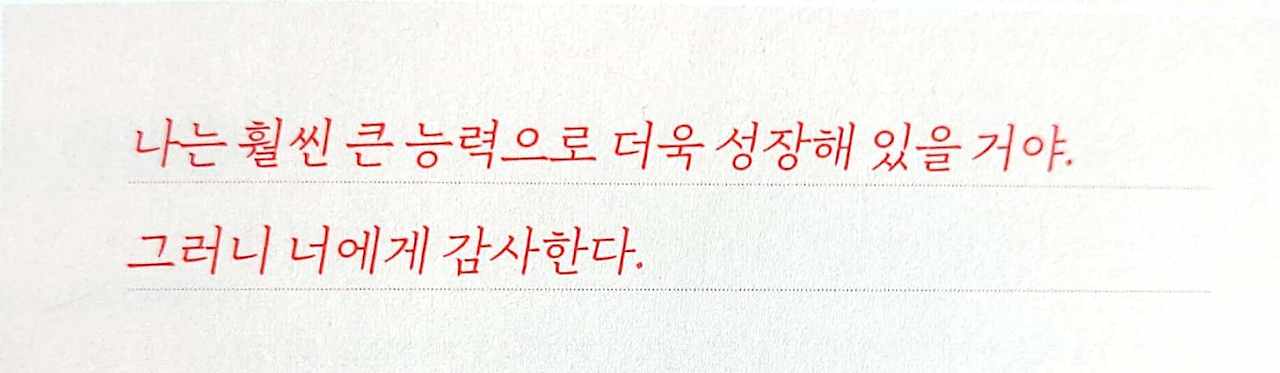 나는 훨씬 큰 능력으로 더욱 성장해 있을 거야.
그러니 너에게 감사한다.